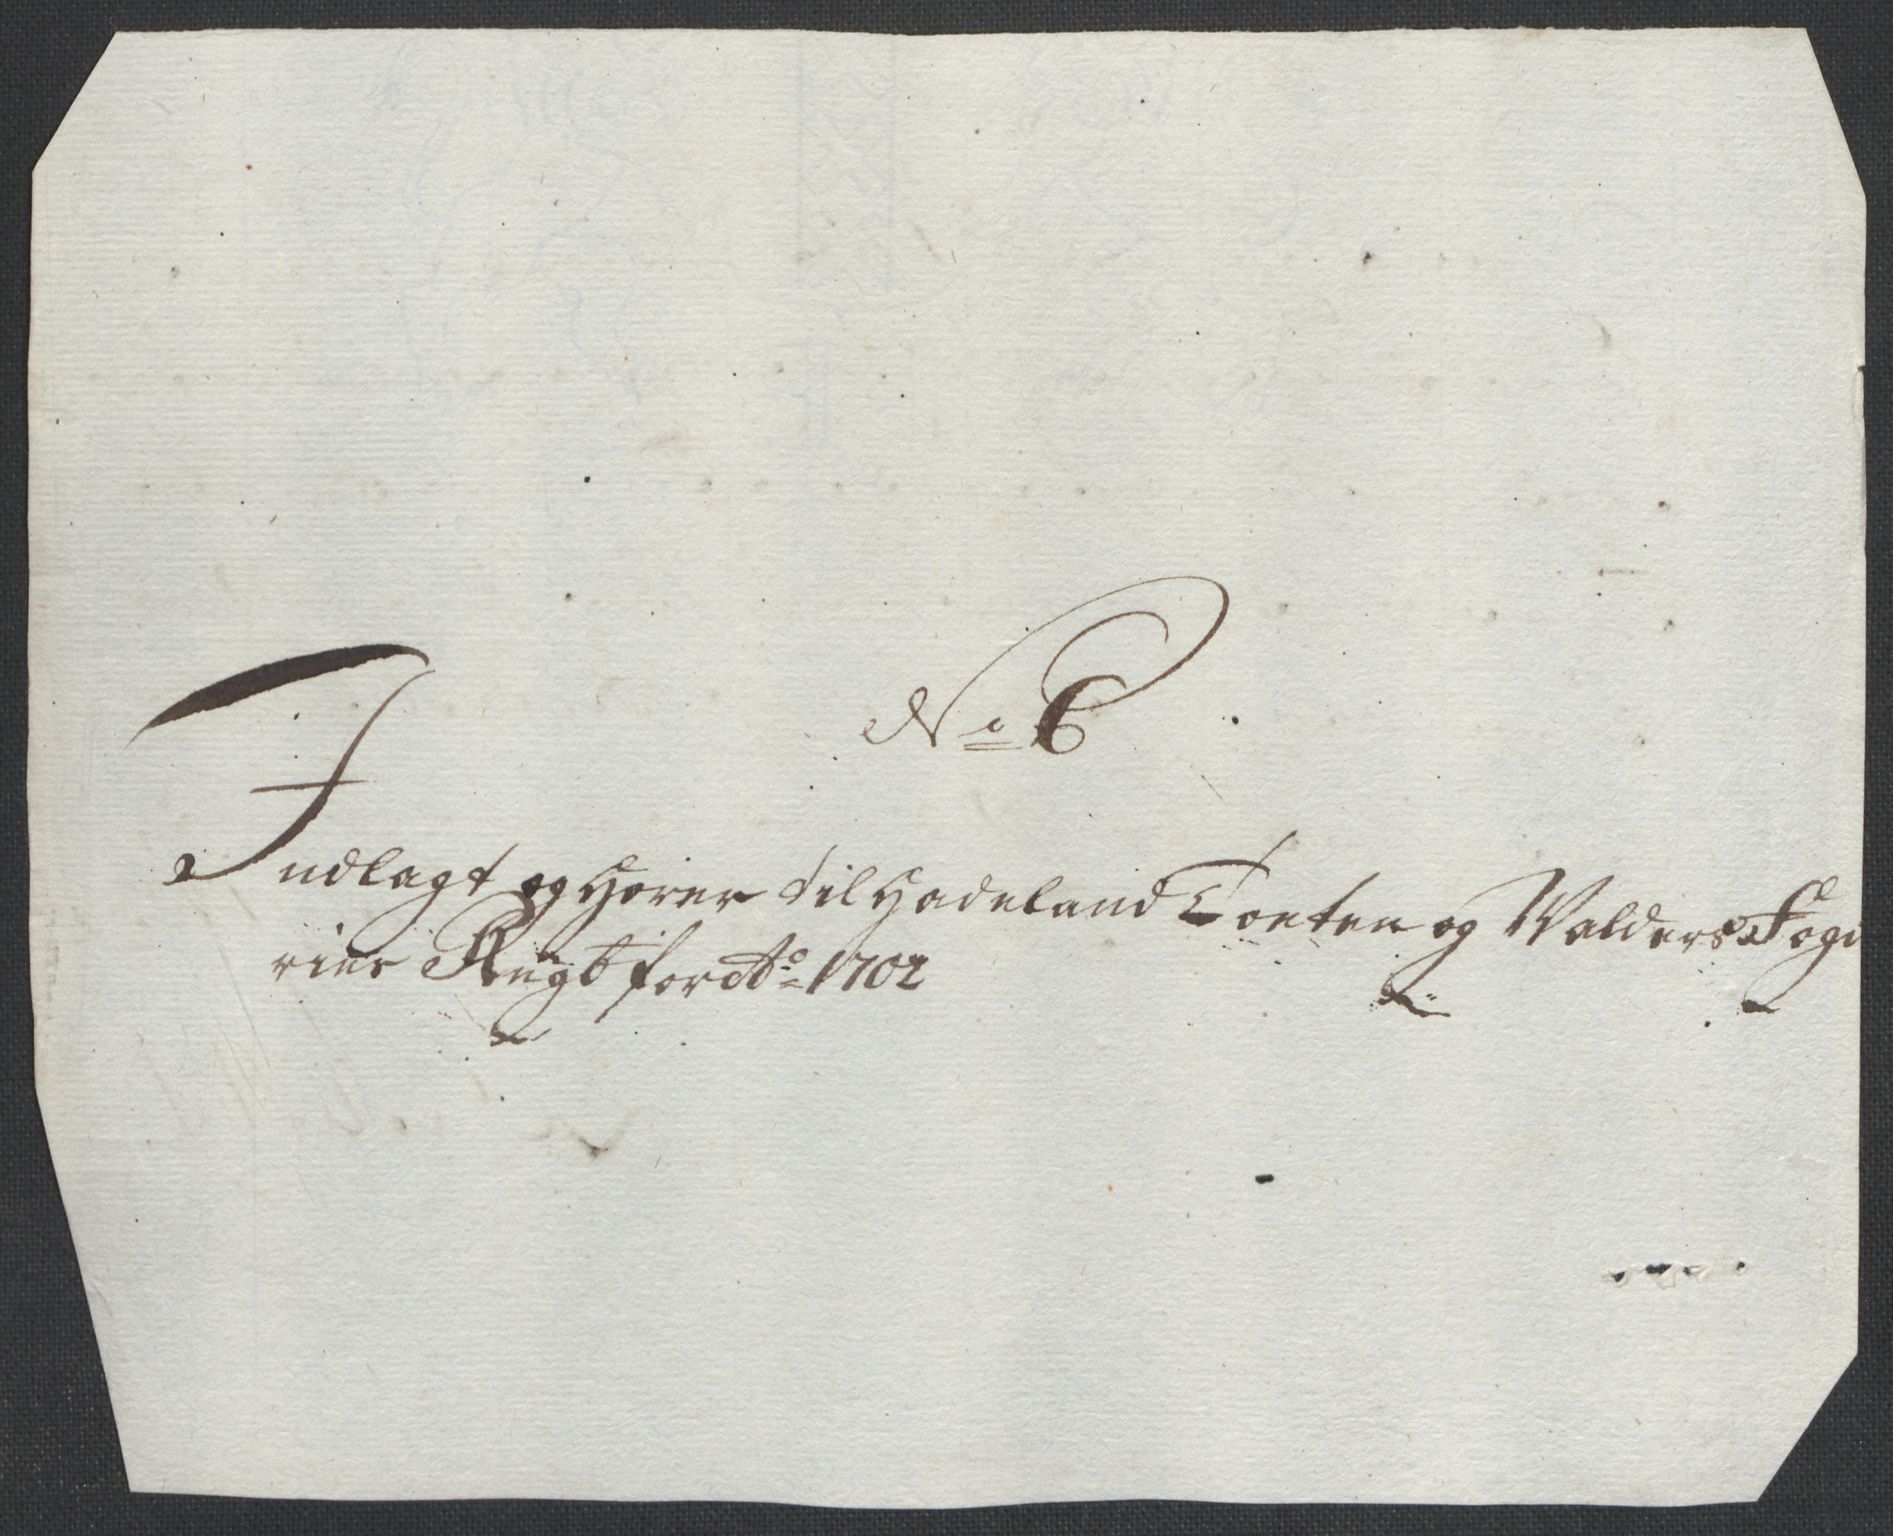 No 6
Indlagt og Hører til Hadeland Toeten og Valders Fogd
riers Regb for Ao 1702